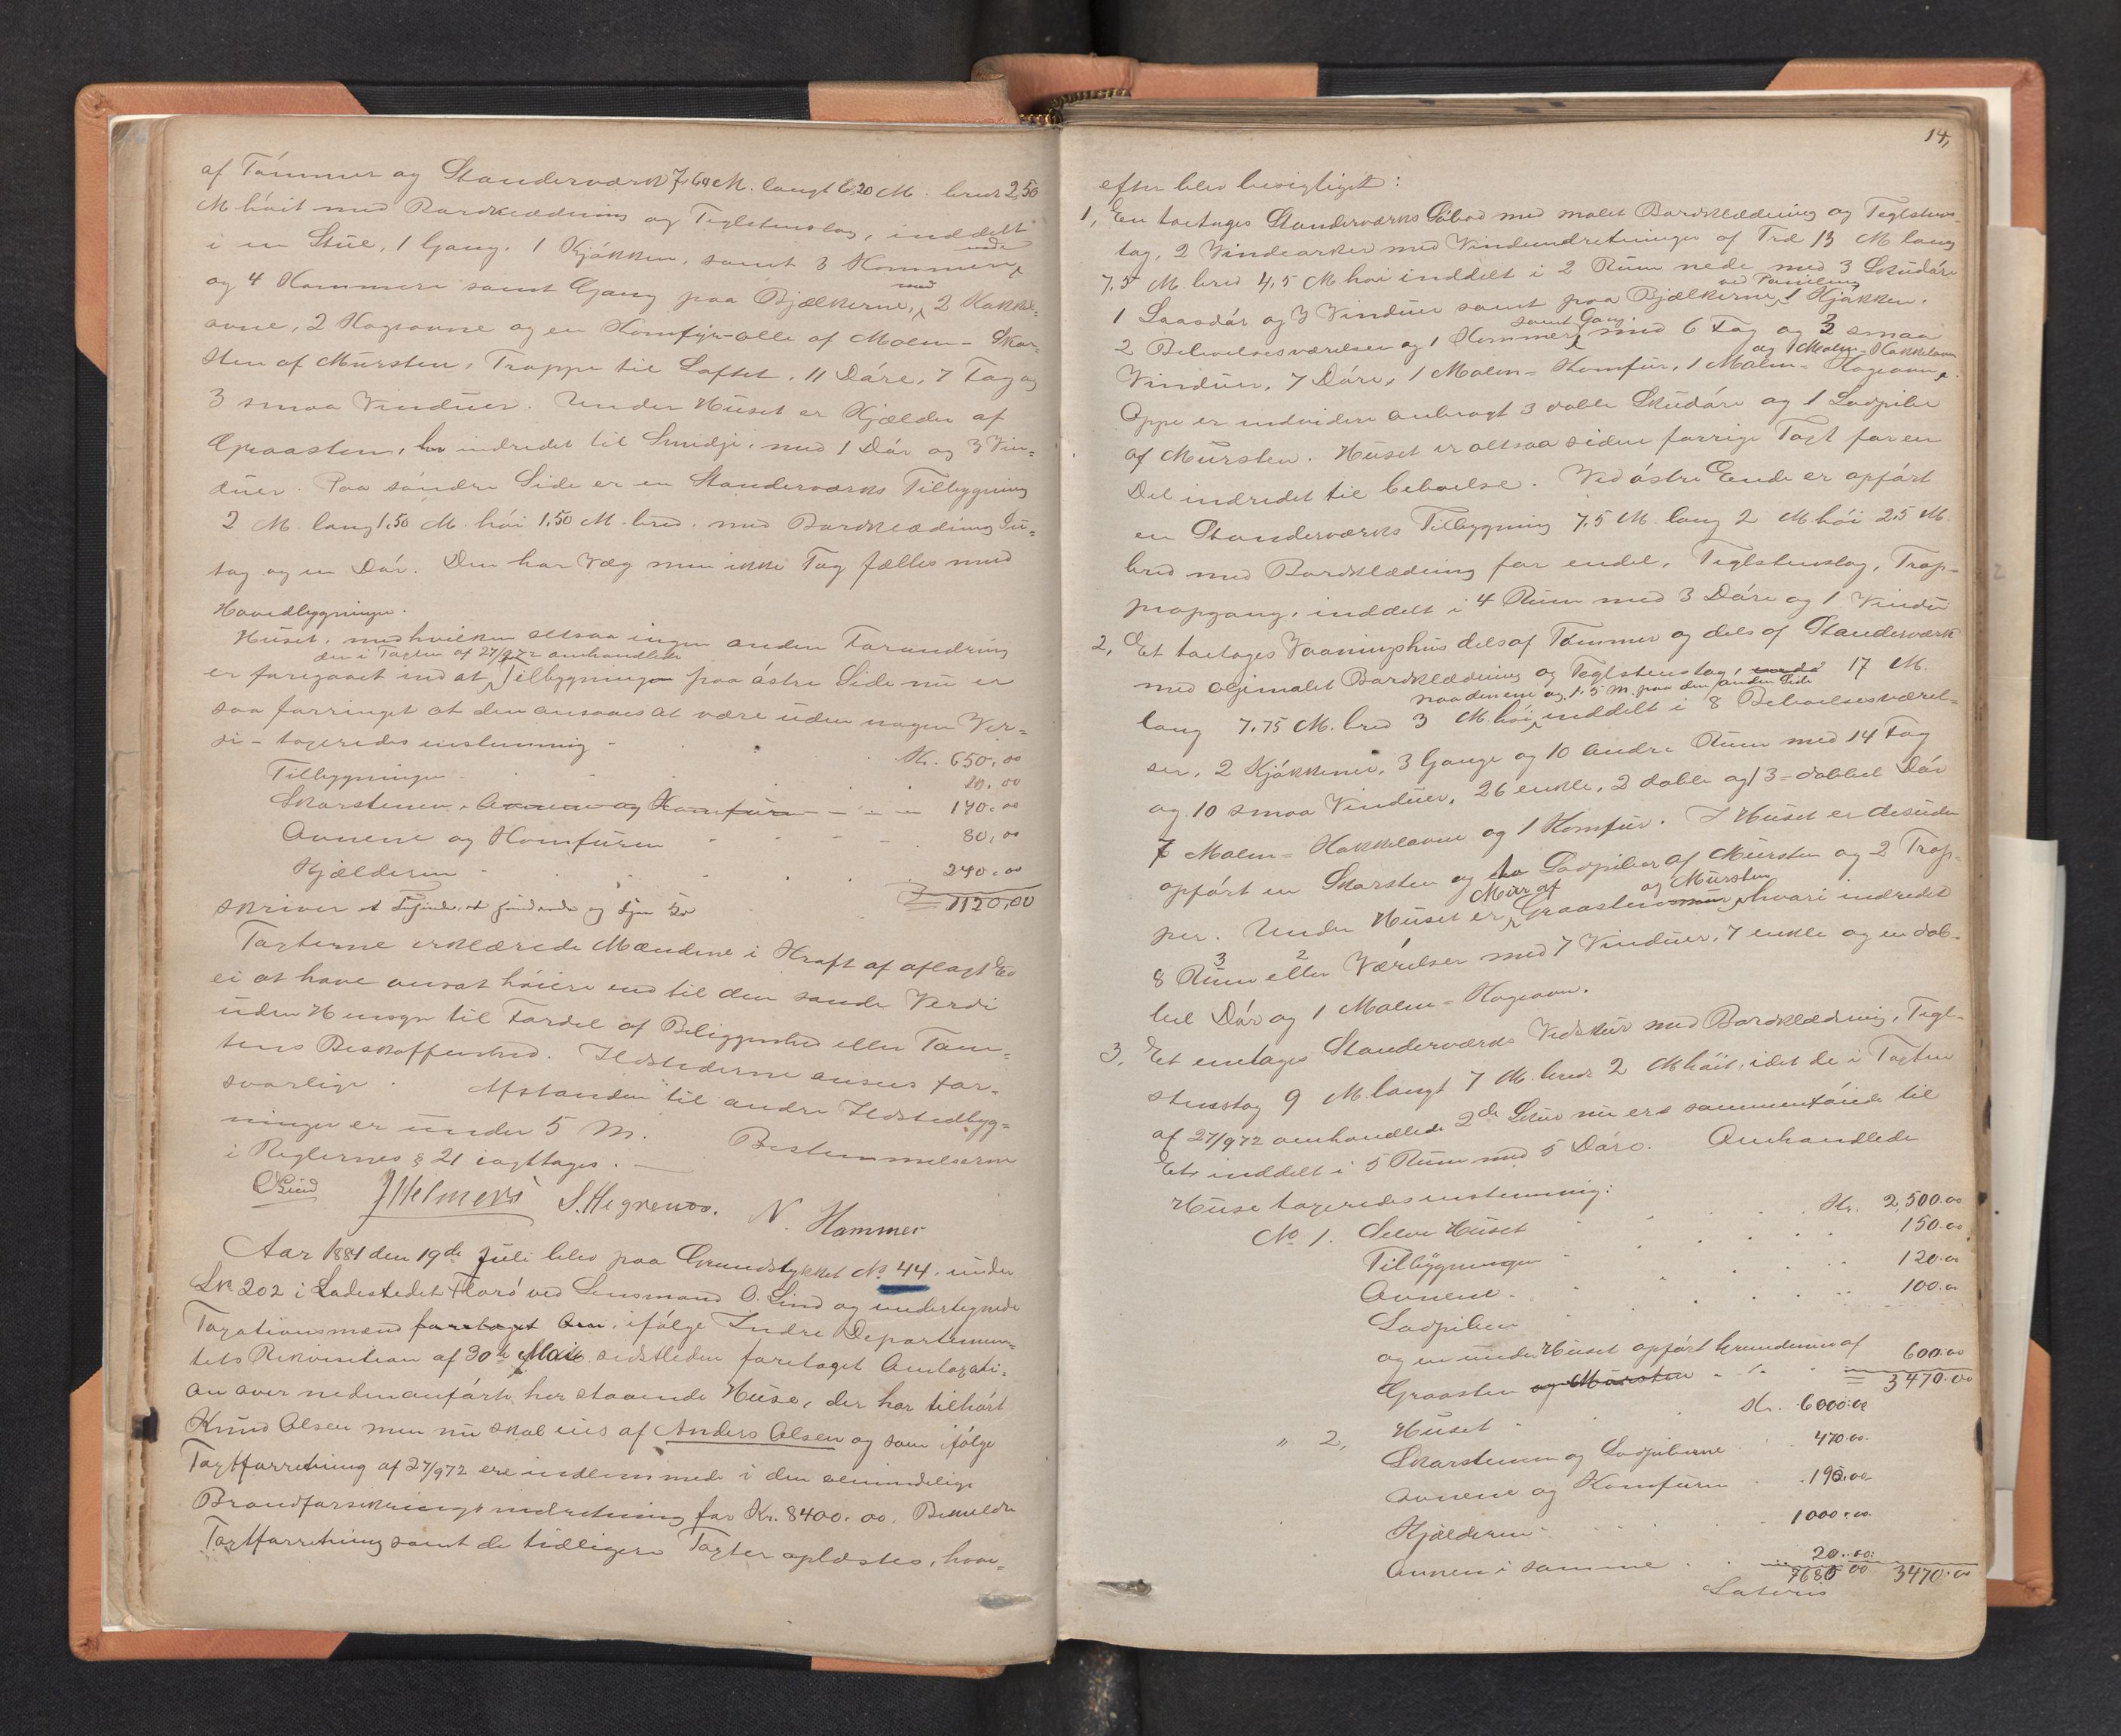 af Tömmer og Standerværk 7,60 M. langt 6,20 M. bredt 2,50
M höit med Bordklædning og Teglstenstag, inddelt
i en Stue, 1 Gang, 1 Kjökken, samt 3 Kammere nede
og 4 Kammere samt Gang paa Bjælkerne, med 2 Kakkel=
ovne, 2 Kogeovne og en Komfyr – alle af Malm – Skor=
sten af Mursten, Trappe til Loftet, 11 Döre, 7 Fag og
3 smaa Vinduer. Under Huset er Kjelder af
Graasten, indredet til Smedje, med 1 Dör og 3 Vin=
duer. Paa söndre Side er en Standerværks Tilbygning
2 M. lang 1,50 M. höi 1,50 M. bred. med Bordklædning
tag og en Dör. Den har Væg men ikke Tag fælles med
Hovedbygningen.
Huset, med hvilken altsaa ingen anden Forandring
er foregaaet end at den i Taxten af 27/9 72 omhandlede Tilbygning paa östre Side nu er
saa forringet at den ansaaes at være uden nogen Ver=
di – taxeredes enstemmig – Kr. 650,00
Tilbygningen 10,00
Skorstenen, Ovnene og Komfuren 140,00
Ovnene og Komfuren 80,00
Kjælderen 240,00
skriver 1120,00
Taxterne erklærede Mændene i Kraft af aflagt Ed
ei at have ansat höiere end til den sande Verdi
uden Hensyn til Fordel af Beliggenhed eller Tom=
tens Beskaffenhed. Ildstederne ansees for=
svarlige. Afstanden til andre Ildstedbyg=
ninger er under 5 M. Bestemmelserne
i Reglernes § 21 iagttages.
OLind JHelmers S. Hegrenæs. N. Hammer
Aar 1884 den 19de Juli blev paa Grundstykket No 44 under
L.No 202 i Ladestedet Florö ved Lensmand O. Lind og undertegnede
Taxationsmænd foretaget Om, ifölge Indre Departemen=
tets Rekvisition af 30te Mai sidstleden foretaget Omtaxati=
on over nedenanförte, her staaende Huse, der har tilhört
Knud Olsen men nu skal eies af Anders Olsen og som ifölge
Taxtforretning af 27/9 72 ere indlemmede i den almindelige
Brandforsikringsindretning for Kr. 8400,00. Bemeldte
Taxtforretning samt de tidligere Taxter oplæstes, hvor=
14,
efter blev besigtiget:
1, En toetages Standerværks Söbod med malet Bordklædning og Teglstens=
tag, 2 Vindearker med Vindeindretninger af Træ 13 M lang
7,5 M bred 4,5 M höi inddelt i 2 Rum nede med 3 Skudöre
1 Laasdör og 3 Vinduer samt paa Bjælkerne, ved Paneling 1 Kjökken,
2 Beboelsesværelser og 1 Kammer, samt Gang med 6 Fag og 3 smaa
Vinduer, 7 Döre, 1 Malm=Komfur, 1 Malm=Kogeovn og 1 Malm-Kakkelovn.
Oppe er endvidere anbragt 3 doble Skudöre og 1 Lodpibe
af Mursten. Huset er altsaa siden forrige Taxt for en
Del indredet til beboelse. Ved östre Ende er opfört
en Standerværks Tilbygning 7,5 M lang 2 M höi 2,5 M.
bred med Bordklædning for endel, Teglstenstag, Trap=
peopgang, inddelt i 4 Rum med 3 Döre og 1 Vindu
2, Et toetages Vaaningshus dels af Tömmer og dels af Standerværk
med oljemalet Bordklædning og Teglstenstag, 17 M.
lang 7,75 M. bred 3 M. höi paa den ene og 1,5 M. paa den anden Side inddelt i 8 Beboelsesværel=
ser, 2 Kjökkener, 3 Gange og 10 andre Rum med 14 Fag
og 10 smaa Vinduer, 26 enkle, 2 doble og 1 3-dobbel Dör
7 Malm=Kakkelovne og 1 Komfur. I Huset er desuden
opfört en Skorsten og to Lodpiber af Mursten og 2 Trap=
per. Under Huset er Mur af Graastensmur og Mursten hvori indredet
8 Rum eller Værelser med 7 Vinduer, 7 enkle og en dob=
bel Dör og 1 Malm=Kogeovn.
3, Et enetages Standerværks Vedskur med Bordklædning, Tegl=
stenstag 9 M. langt 7 M. bredt 2 M höit, idet de i Taxten
af 27/9 72 omhandlede 2de Skur nu ere sammenföiede til
Et, inddelt i 5 Rum med 5 Döre. Omhandlede
Huse taxeredes enstemmig:
No 1. Selve Huset Kr. 2,500.00
Tilbygningen 150.00
Ovnene 120.00
Lodpiben 100.00
og en under Huset opfört Grundmur af
Graasten og Mursten 600.00
3470.00
" 2, Huset Kr. 6000.00
Skorstenen og Lodpiberne 470.00
Ovnene og Komfuren 190.00
Kjælderen 1000.00
Ovnen i samme 20.00
7680 00 3470.00
Lateris